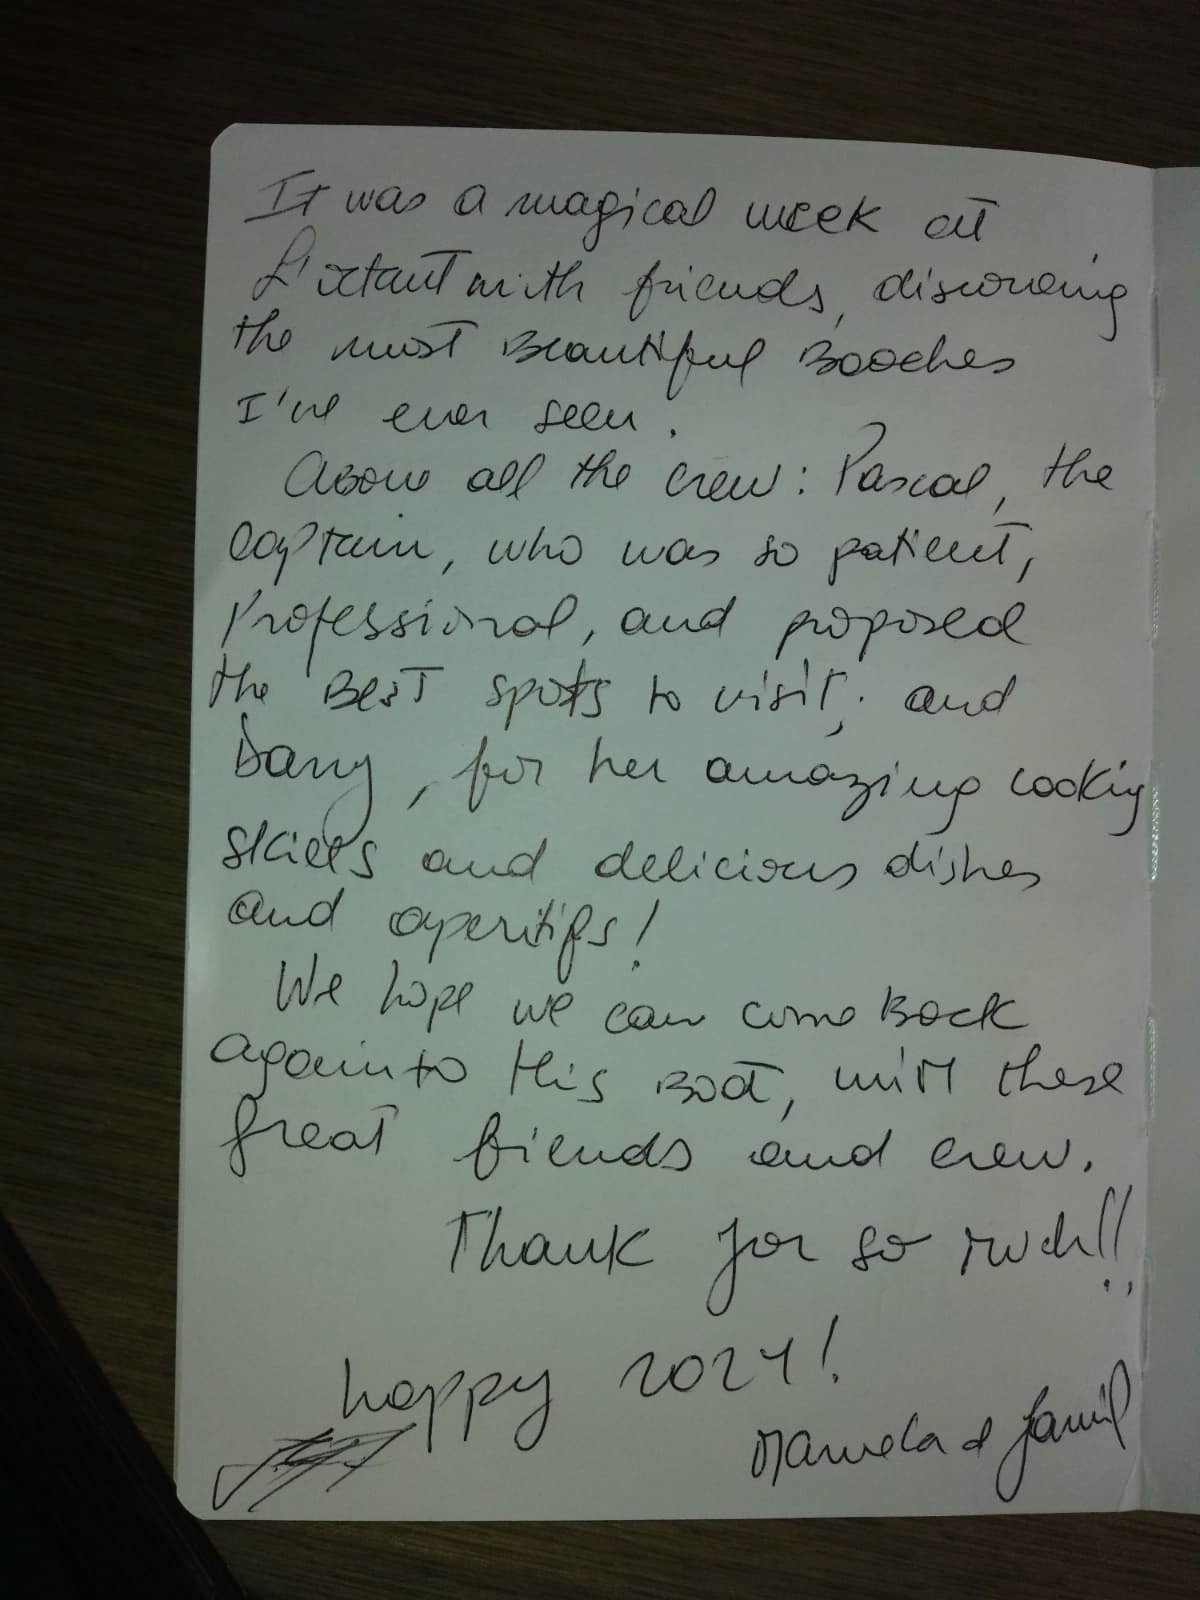 It was a magical week at
with friends, discovering
the most Beautiful Beaches
I've ever seen.
Above all the crew: Pascal, the
captain, who was so patient,
Professional, and proposed
the Best spots to visit; and
Dany, for her amazing cooking
skills and delicious dishes
and aperitifs!
We hope we can come Back
again to this Boat, with these
great friends and crew.
Thank for so much!!
happy 2024!
&